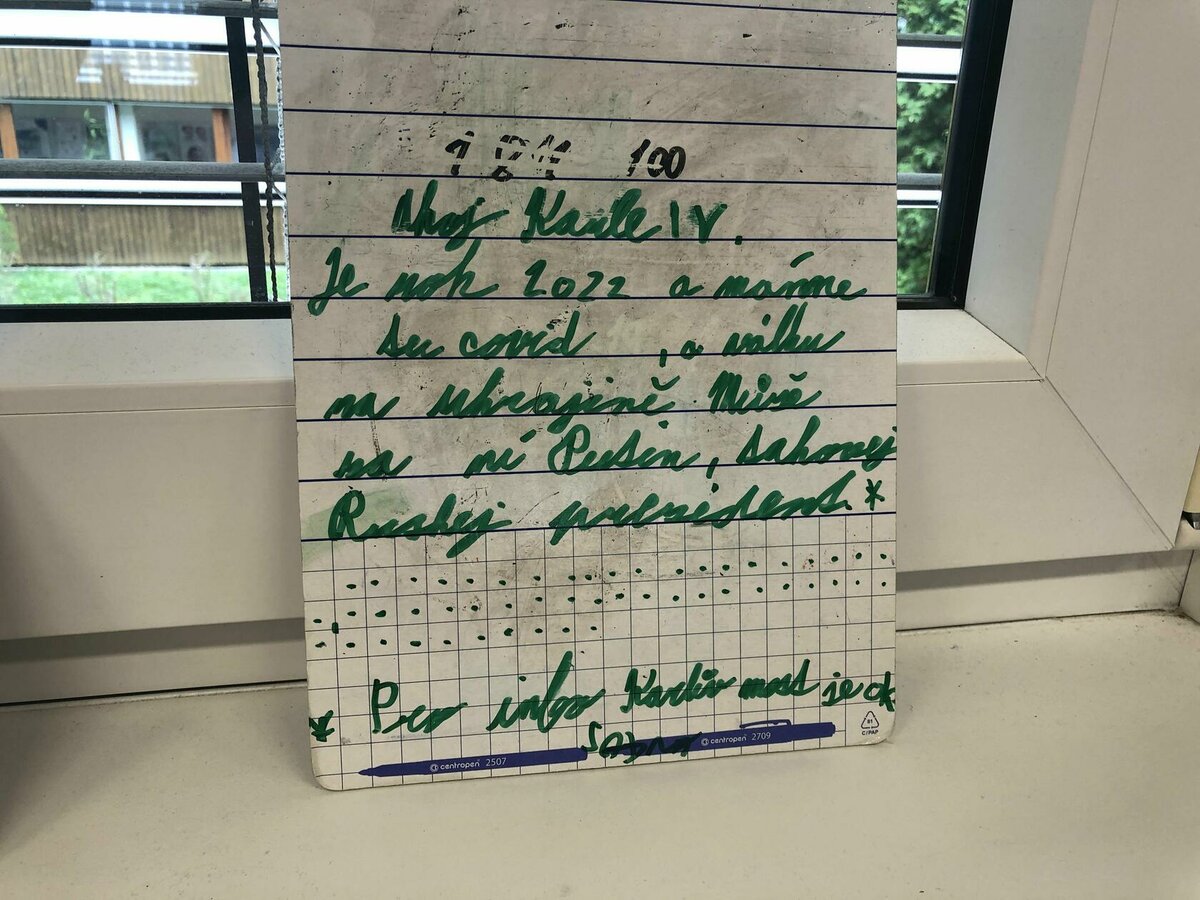 100
Ahoj Karle IV.
Je rok 2022 a máme
tu covid , a válku
na ukrajině. Může
za ní Putin, takovej
Ruskej prezident.*
* Pro info Karlův most je ok
centropen 2709
centropen 2507
81
C/PAP